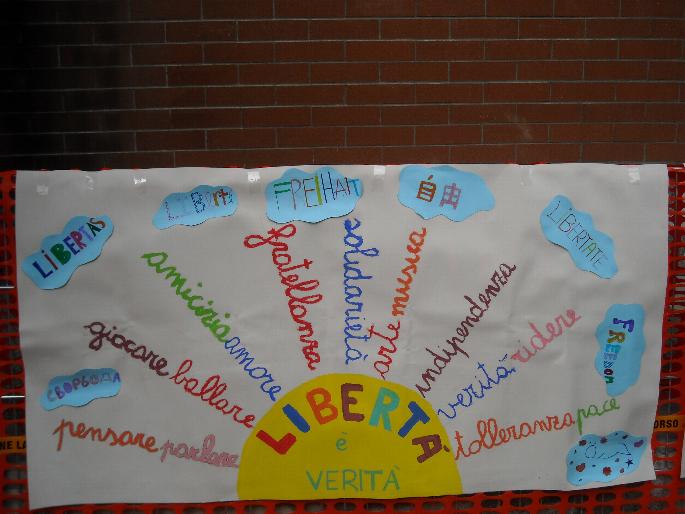 LIBERTAS
LIBERTÈ
FREIHAIT
自由
LIBERTATE
FREEDOM
СВОРЬОДА
pensare parlare
giocare ballare
amicizia amore
fratellanza
solidarietà
arte musica
indipendenza
verità ridere
tolleranza pace
LIBERTÀ
è
VERITÀ